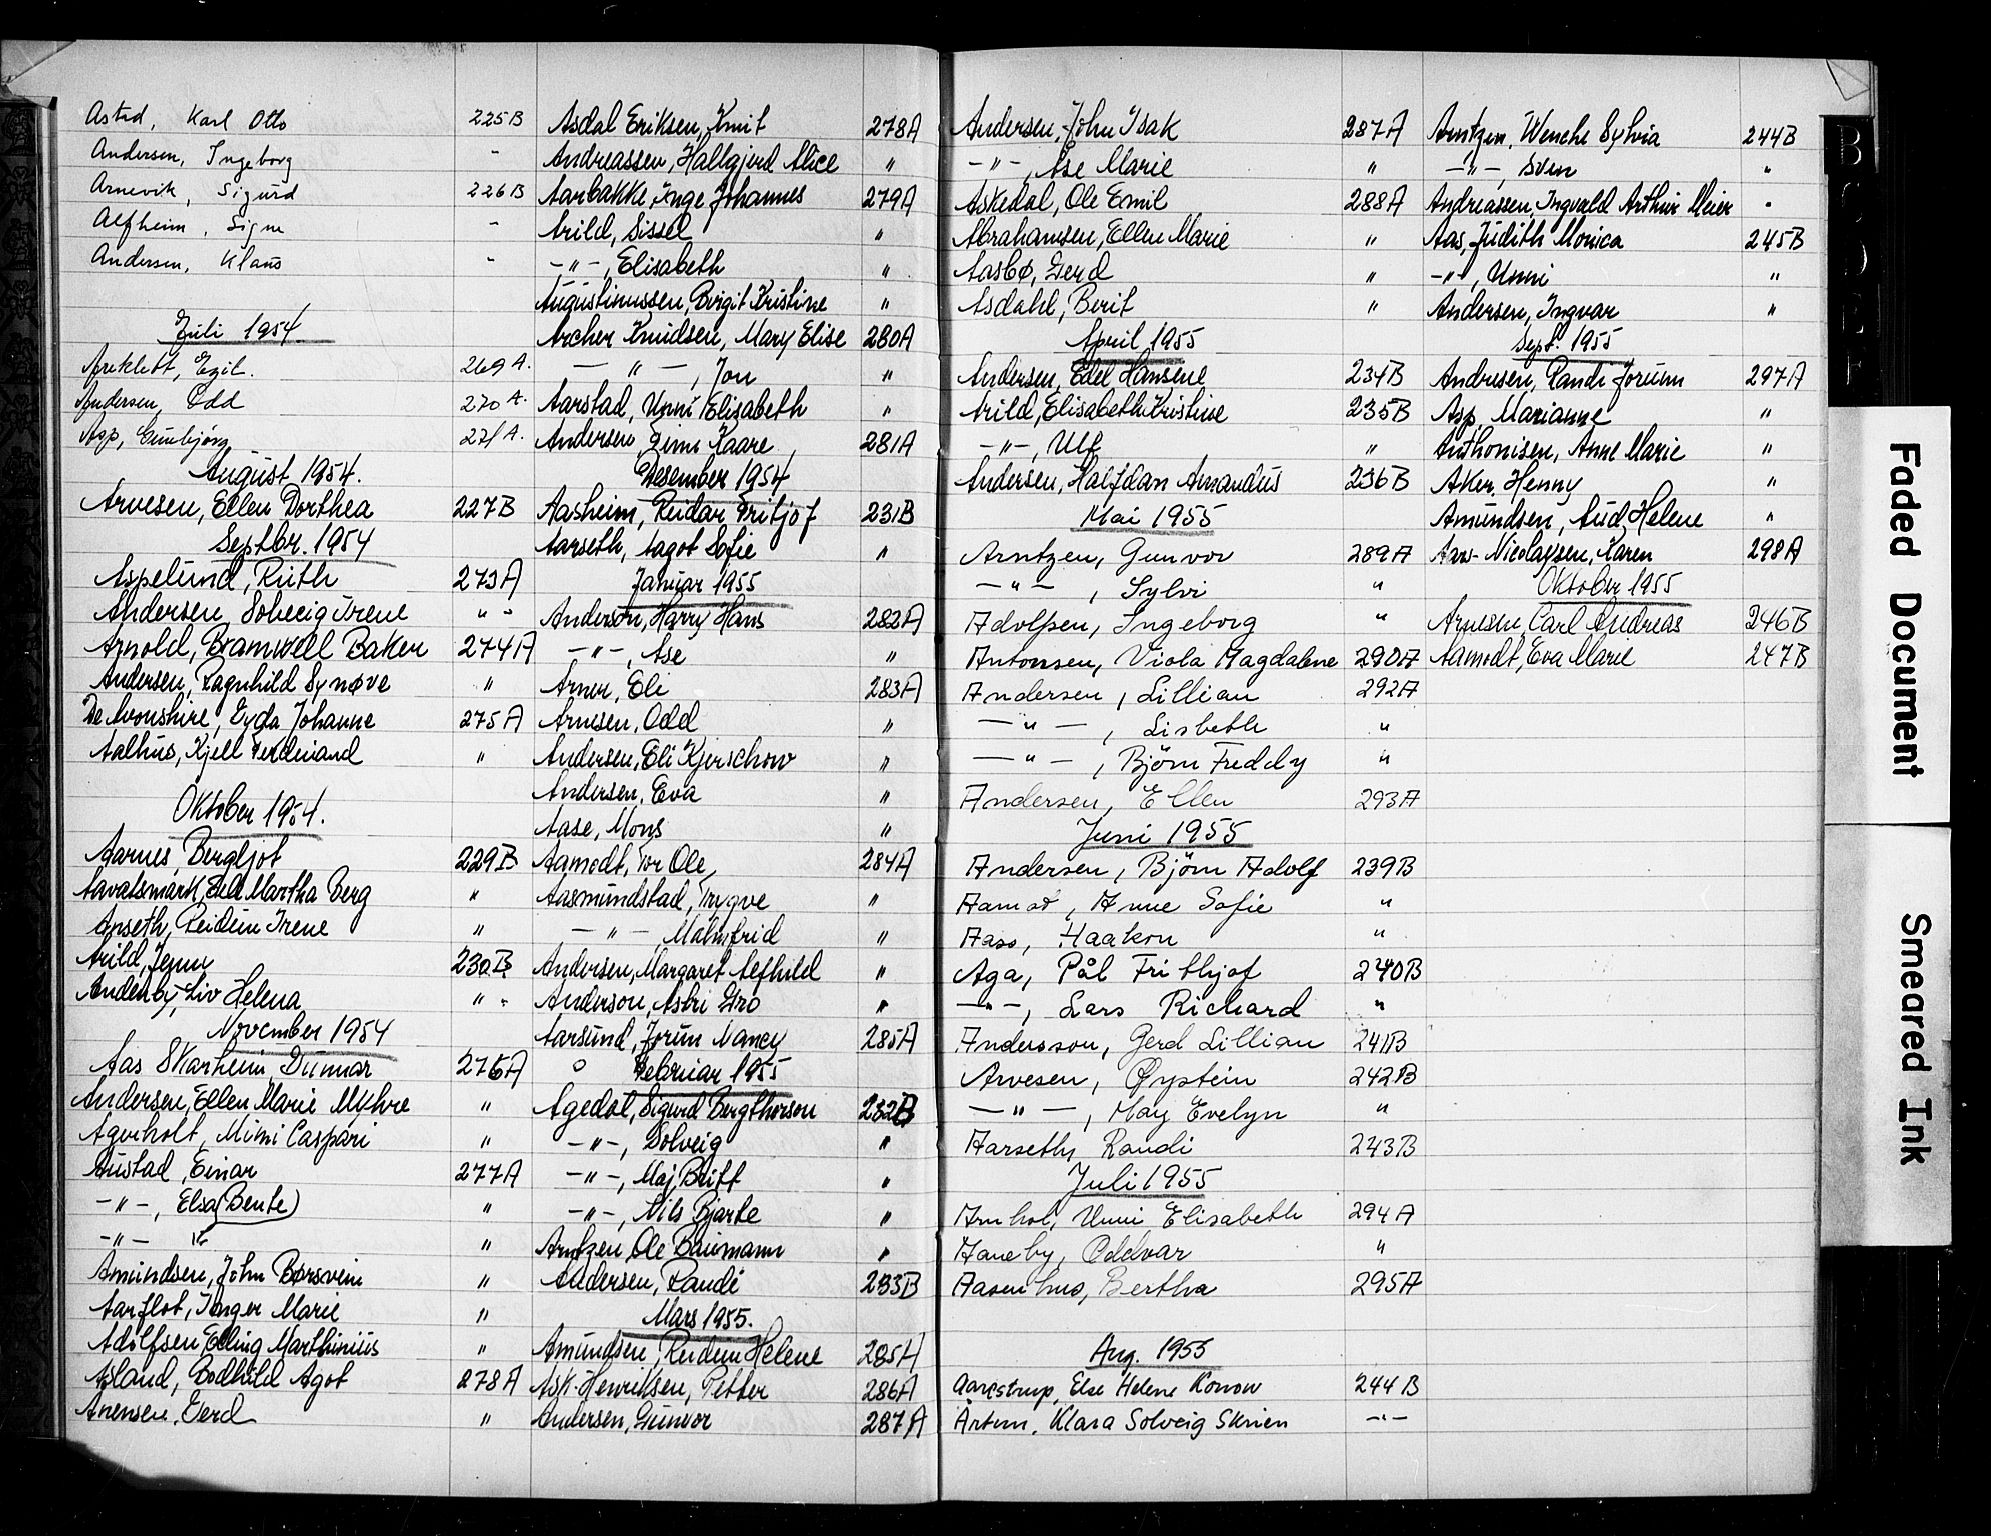 Astad, Karl Otto 225B
Andersen, Ingeborg -
Arnevik, Sigurd 226B
Alfheim, Signe -
Andersen, Klaus -
Juli 1954
Areklett, Egil. 269A.
Andersen, Odd 270A.
Asp, Gunbjørg 271A.
August 1954.
Arvesen, Ellen Dorthea 227B
Septbr. 1954
Aspelund, Ruth 273A
Andersen Solveig Irene " "
Arnold, Bramwell Baker 274A
Andersen, Ragnhild Synøve "
De Avonshire, Eyda Johanne 275A
Aalhus, Kjell Ferdinand "
Oktober 1954.
Aarnes, Bergljot 229B
Aavatsmark, Martha Berg "
Anseth, Reidun Irene "
Arild, Jenny 230B
Andenby, Liv Helena " "
November 1954
Aas Skarheim, Dunnar 276A
Andersen, Ellen Marie Myhre "
Agerholt, Mimi Caspari "
Austad, Einar 277A
-"-, Elsa (Bente) "
-"- "
Amundsen, John Børsvein "
Aarflot, Inger Marie "
Adolfsen, Elling Marthinius "
Åsland, Bodhild Agot 278A
Anensen, Gerd "
Asdal Eriksen, Knut 278A
Andreassen, Hallgjerd Alice "
Aarbakke, Inge Johannes 279A
Arild, Sissel "
-"-, Elisabeth "
Augustinussen, Birgit Kristine "
Archer Knudsen, Mary Elise 280A
- " -, Jon "
Aarstad, Unni Elisabeth "
Andersen, Finn Kaare 281A
Desember 1954
Aasheim, Reidar Fritjof 231B
Aarseth, Aagot Sofie "
Januar 1955
Anderson, Harry Hans 282A
-"-, Åse "
Arner, Eli 283A
Arnesen, Odd "
Andersen, Eli Kjerschow "
Andersen, Eva "
Aase, Mons "
Aamodt, Tor Ole 284A
Aasmundstad, Trygve "
- " -, Malmfrid "
Andersen, Margaret Alfhild "
Anderson, Astri Gro "
Aarsund, Jorun Nancy 285A
Februar 1955
Agedal, Sigurd Bergthorson 232B
-"-, Solveig "
-"-, Maj Britt "
-"-, Nils Bjarte "
Arntzen, Ole Baumann "
Andersen, Randi 233B
Mars 1955.
Amundsen, Reidun Helene 285A
Ask-Henriksen, Petter 286A
Andersen, Gunvor 287A
Andersen, John Isak 287A
-"-, Åse Marie "
Askedal, Ole Emil 288A
Abrahamsen, Ellen Marie "
Aasbø, Gerd "
Asdahl, Berit "
April 1955
Andersen, Edel Hansine 234B
Arild, Elisabeth Kristine 235B
-"-, Ulf "
Andersen, Halfdan Amandus 236B
Mai 1955
Arntzen, Gunvor 289A
- " -, Sylvi "
Adolfsen, Ingeborg "
Antonsen, Viola Magdalene 290A
Andersen, Lillian 292A
- " -, Lisbeth "
- " -, Björn Freddy "
Andersen, Ellen 293A
Juni 1955
Andersen, Björn Adolf 239B
Aamot, Anne Sofie "
Aass, Haakon "
Aga, Pål Frithjof 240B
-"-, Lars Richard "
Andersson, Gerd Lillian 241B
Arvesen, Øystein 242B
- " -, May Evelyn "
Aarseth, Randi 243B
Juli 1955
Arnhol, Unni Elisabeth 294A
Haneby, Oddvar "
Aasenhus, Bertha 295A
Aug. 1955
Aarestrup, Else Helene Konow 244B
Årtun, Klara Solveig Skrien -"-
Arntzen, Wenche Sylvia 244B
-"-, Sven "
Andreassen, Ingvald Arthur Meier "
Aas, Judith Monica 245B
-"-, Unni "
Andersen, Ingvar "
Sept. 1955
Andresen, Randi Jorunn 297A
Asp, Marianne "
Anthonisen, Anne Marie "
Aker, Henny "
Amundsen, Aud Helene "
Aars-Nicolaysen, Karen 298A
Oktober 1955
Arnesen, Carl Andreas 246B
Aamodt, Eva Marie 247B
B
C
D
E
F
Faded Document
Smeared Ink